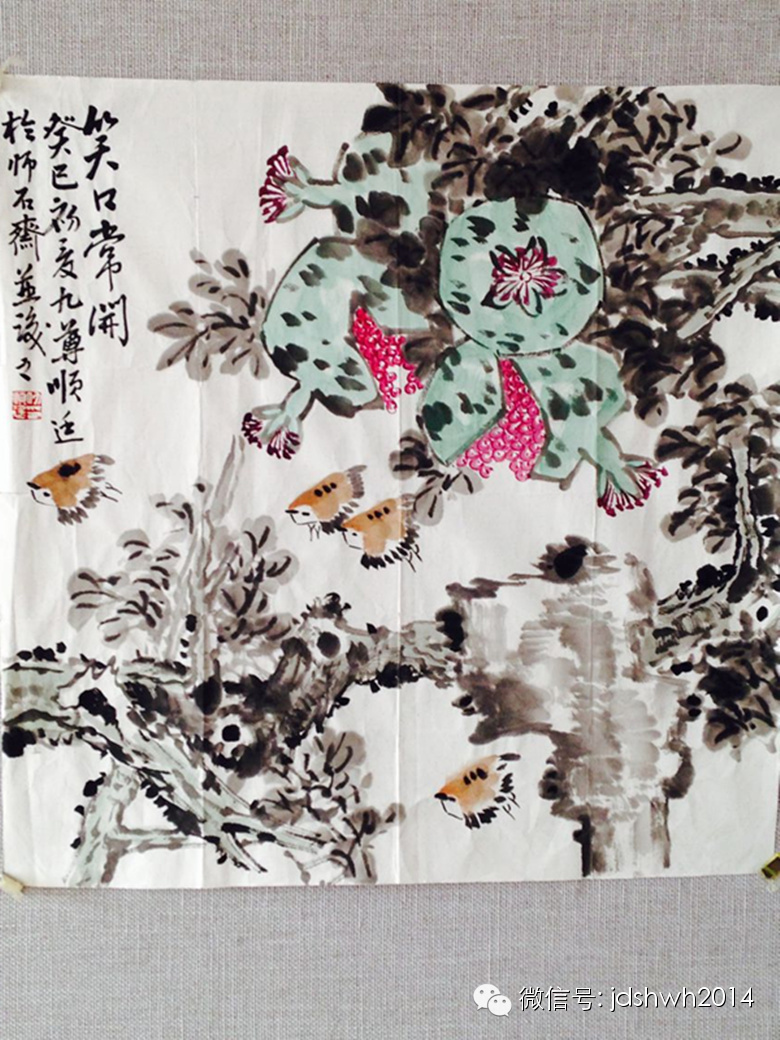 笑口常開
癸巳初夏九尊順廷
於師石齋並識之
微信号: jdshwh2014